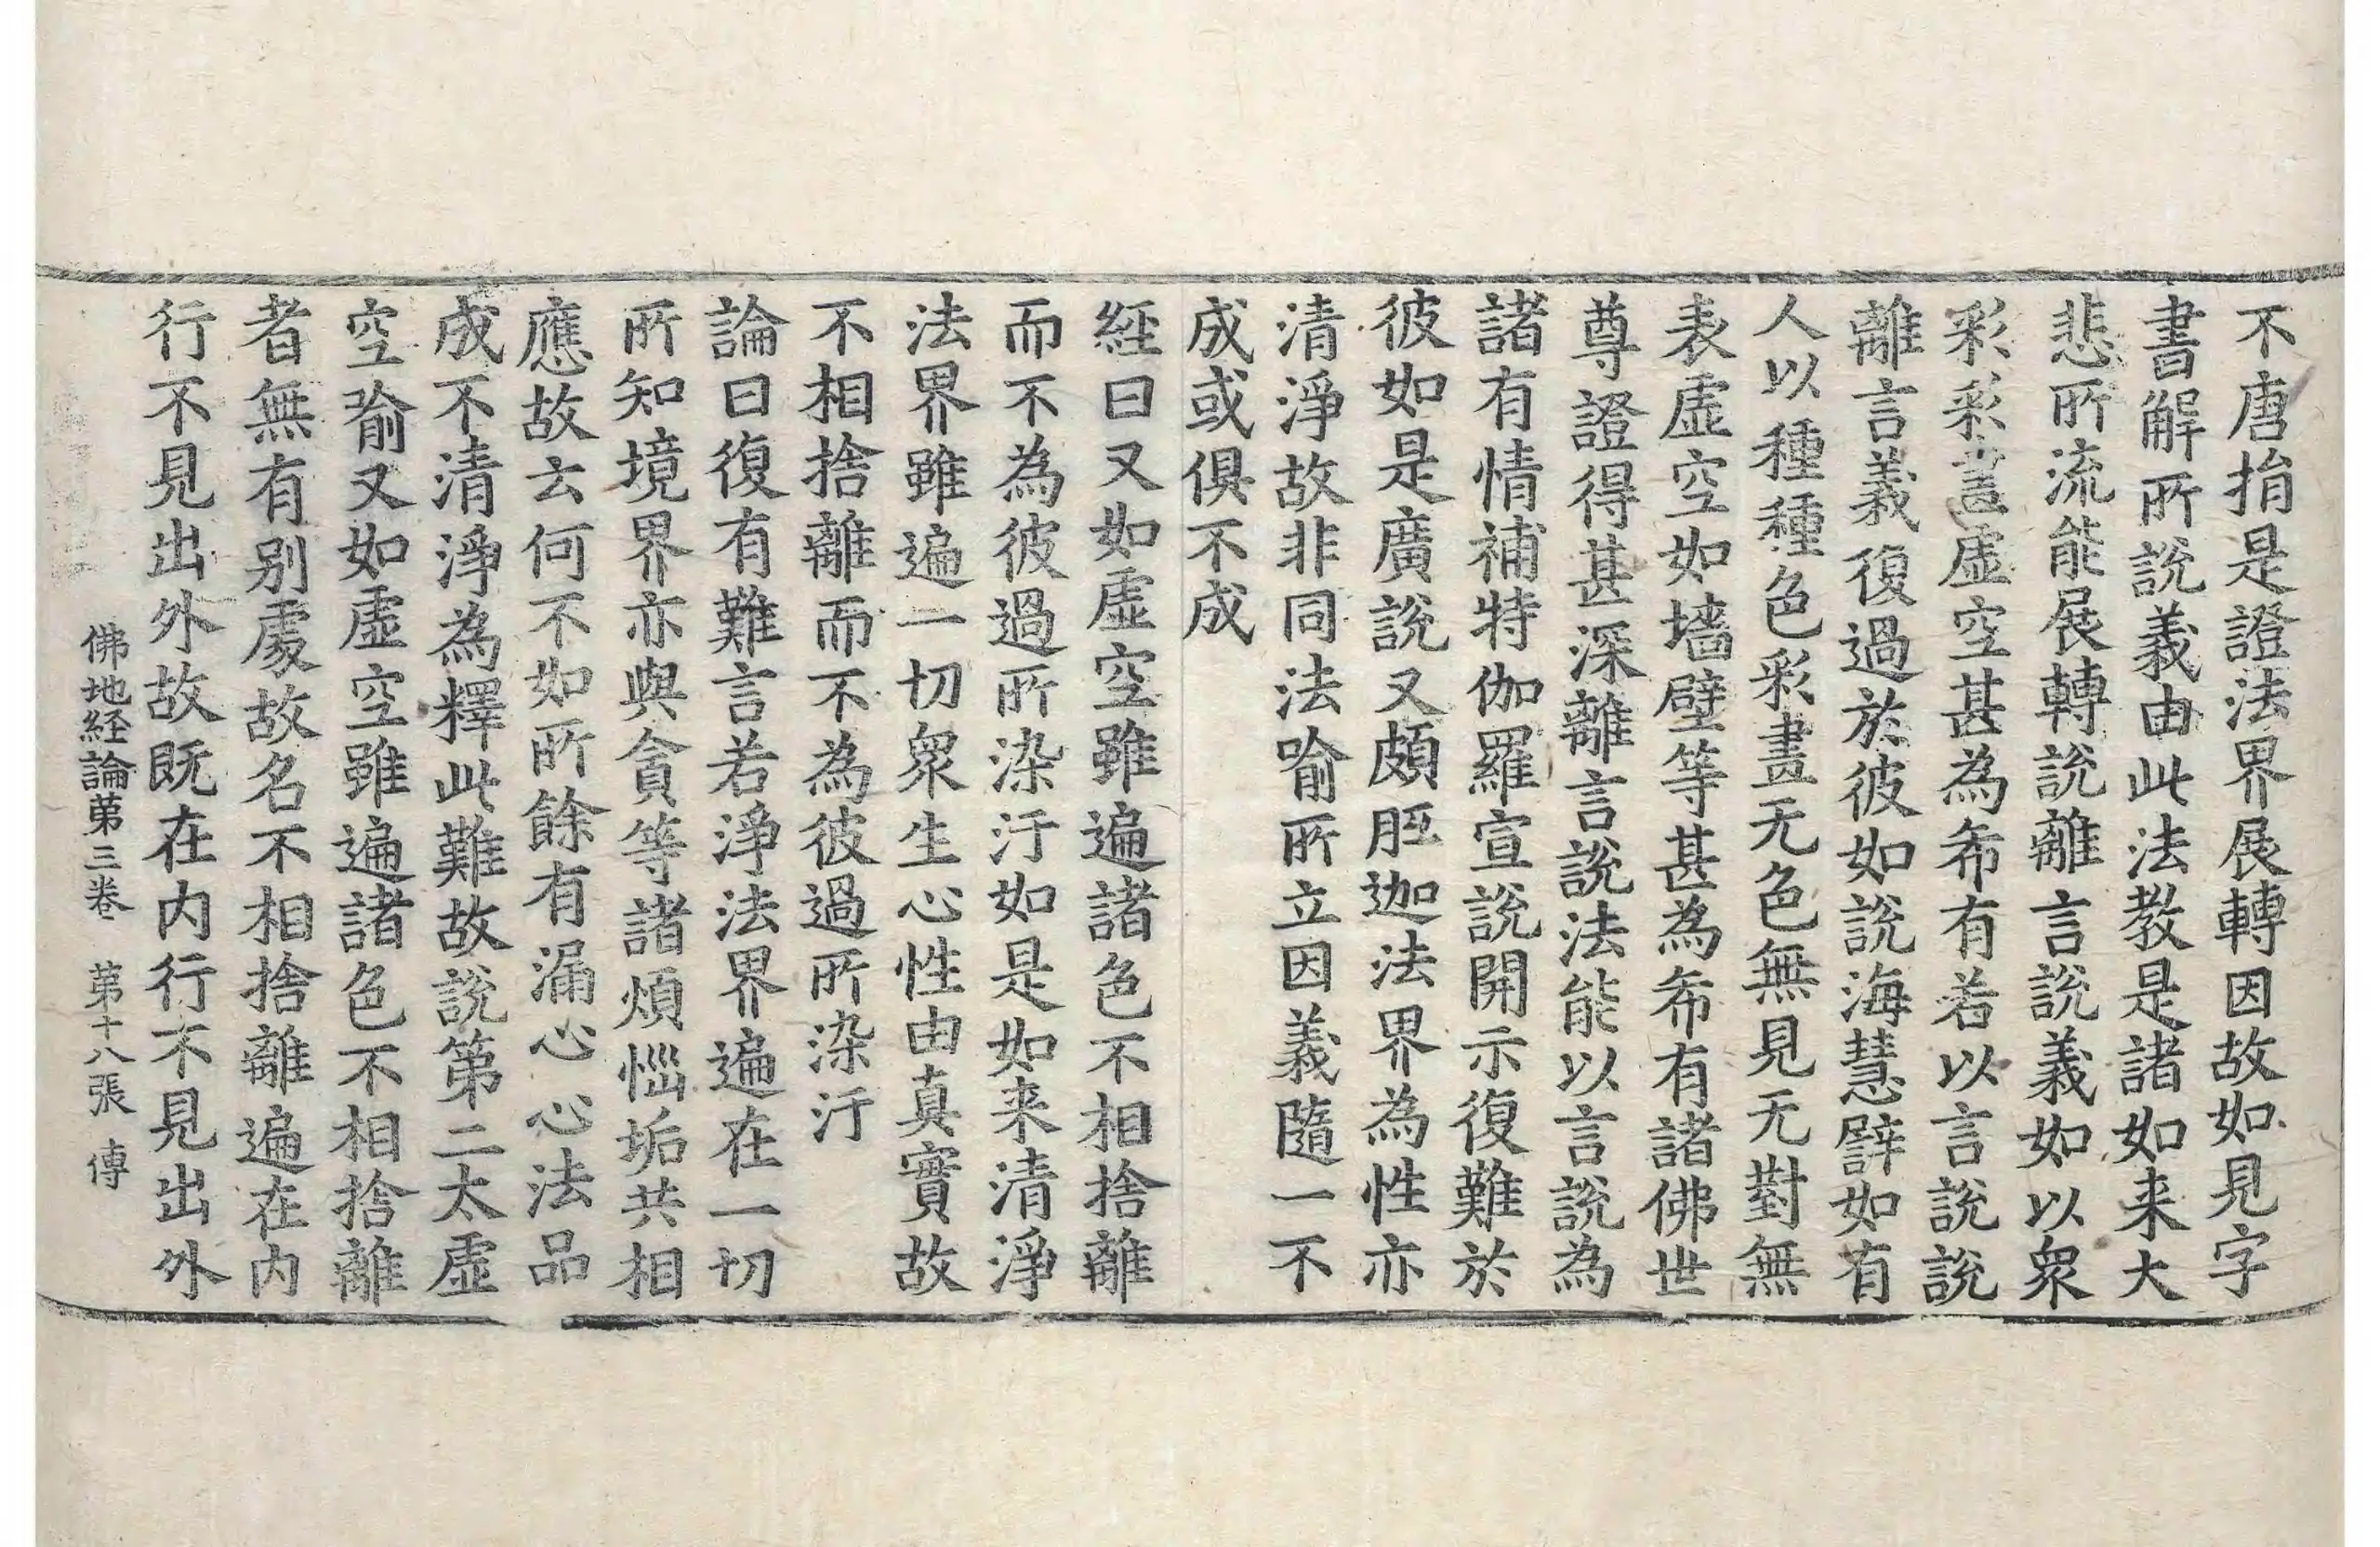 不唐捐是證法界展轉因故如見字
書解所說義由此法教是諸如来大
悲所流能展轉說離言說義如以衆
彩彩畫虛空甚為希有若以言說說
離言義復過於彼如說海慧譬如有
人以種種色彩畫无色無見无對無
表虛空如墻壁等甚為希有諸佛世
尊證得甚深離言說法能以言說為
諸有情補特伽羅宣說開示復難於
彼如是廣說又頗胝迦法界為性亦
清淨故非同法喻所立因義隨一不
成或俱不成
経曰又如虛空雖遍諸色不相捨離
而不為彼過所染汙如是如来清淨
法界雖遍一切衆生心性由真實故
不相捨離而不為彼過所染汙
論曰復有難言若淨法界遍在一切
所知境界亦與貪等諸煩惱垢共相
應故云何不如所餘有漏心心法品
成不清淨為釋此難故說第二太虛
空喻又如虛空雖遍諸色不相捨離
者無有別處故名不相捨離遍在内
行不見出外故既在内行不見出外
佛地経論第三卷　第十八張　傳